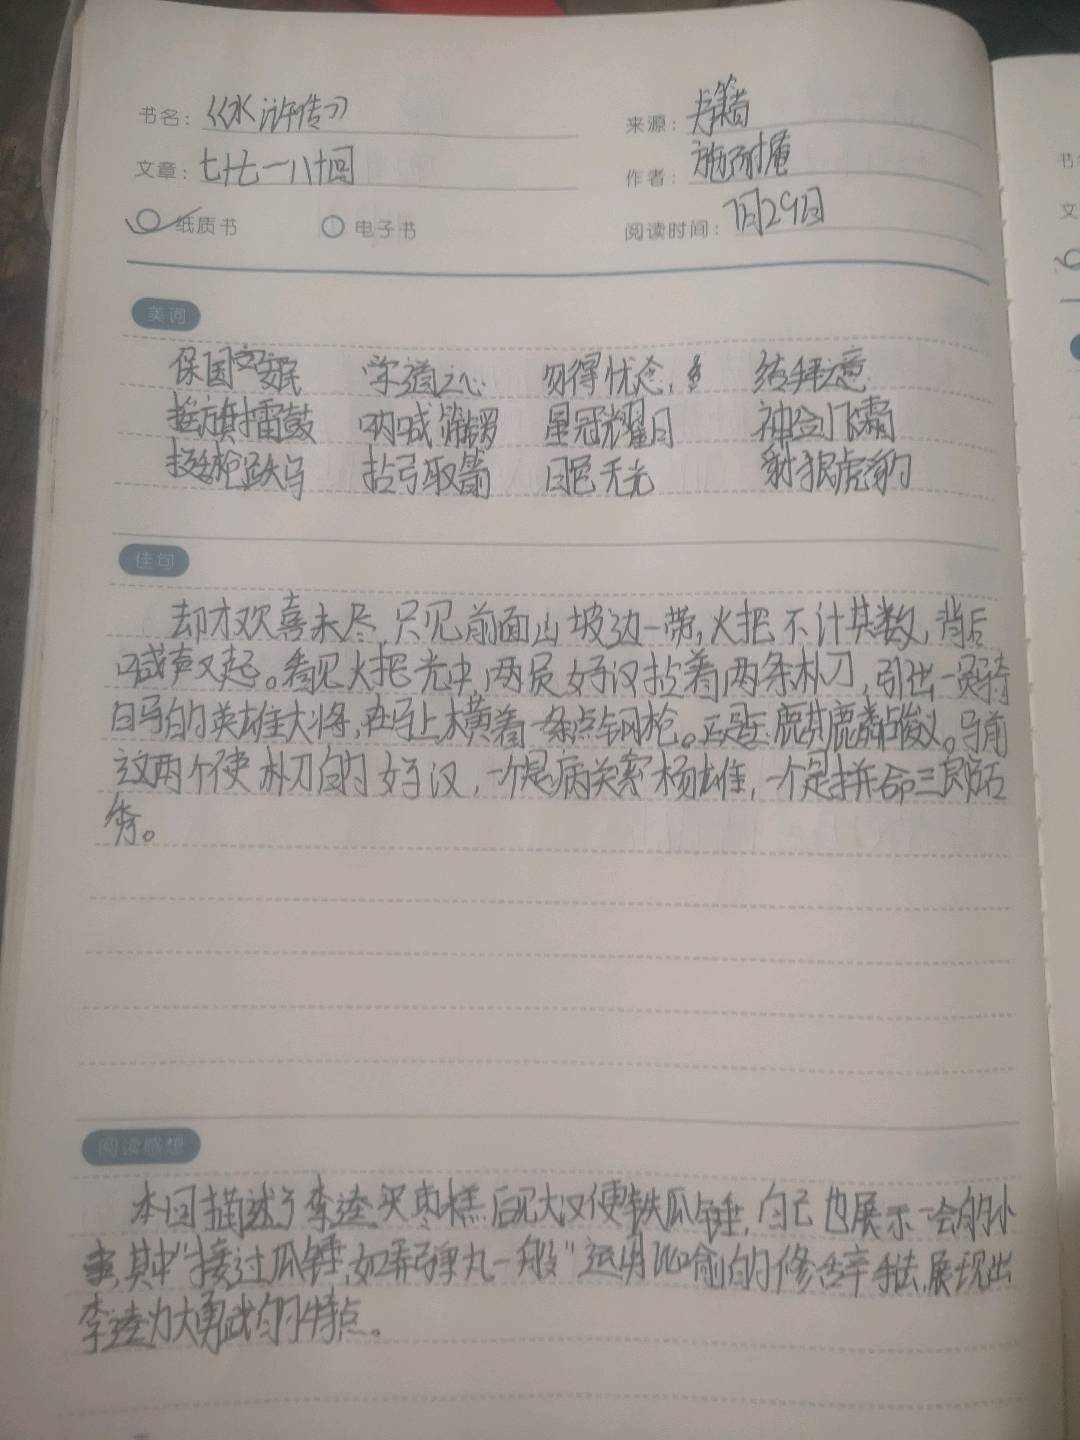 书名：《水浒传》
来源：书籍
文章：七十七一八十回
作者：施耐庵
纸质书 电子书
阅读时间：7月29日
美词
保国安民 学道之心 勿得忧念， 结拜之意
摇旗擂鼓 呐喊筛锣 星冠耀日 神剑飞霜
挺枪跃马 拈弓取箭 日色无光 豺狼虎豹
佳句
却才欢喜未尽，只见前面山坡边一带，火把不计其数，背后
喊声又起。看见火把光中，两员好汉拈着两条朴刀，引出一员骑
白马的英雄大将，在马上横着一条点钢枪。正是玉麒麟卢俊义。马前
这两个使朴刀的好汉，一个是病关索杨雄，一个是拼命三郎石
秀。
阅读感想
本回描述了李逵买枣糕后见大汉使铁瓜锤，自己也展示一会的小
事，其中“接过瓜锤，如弄弹丸一般”运用比喻的修辞手法，展现出
李逵力大勇武的特点。
书
文